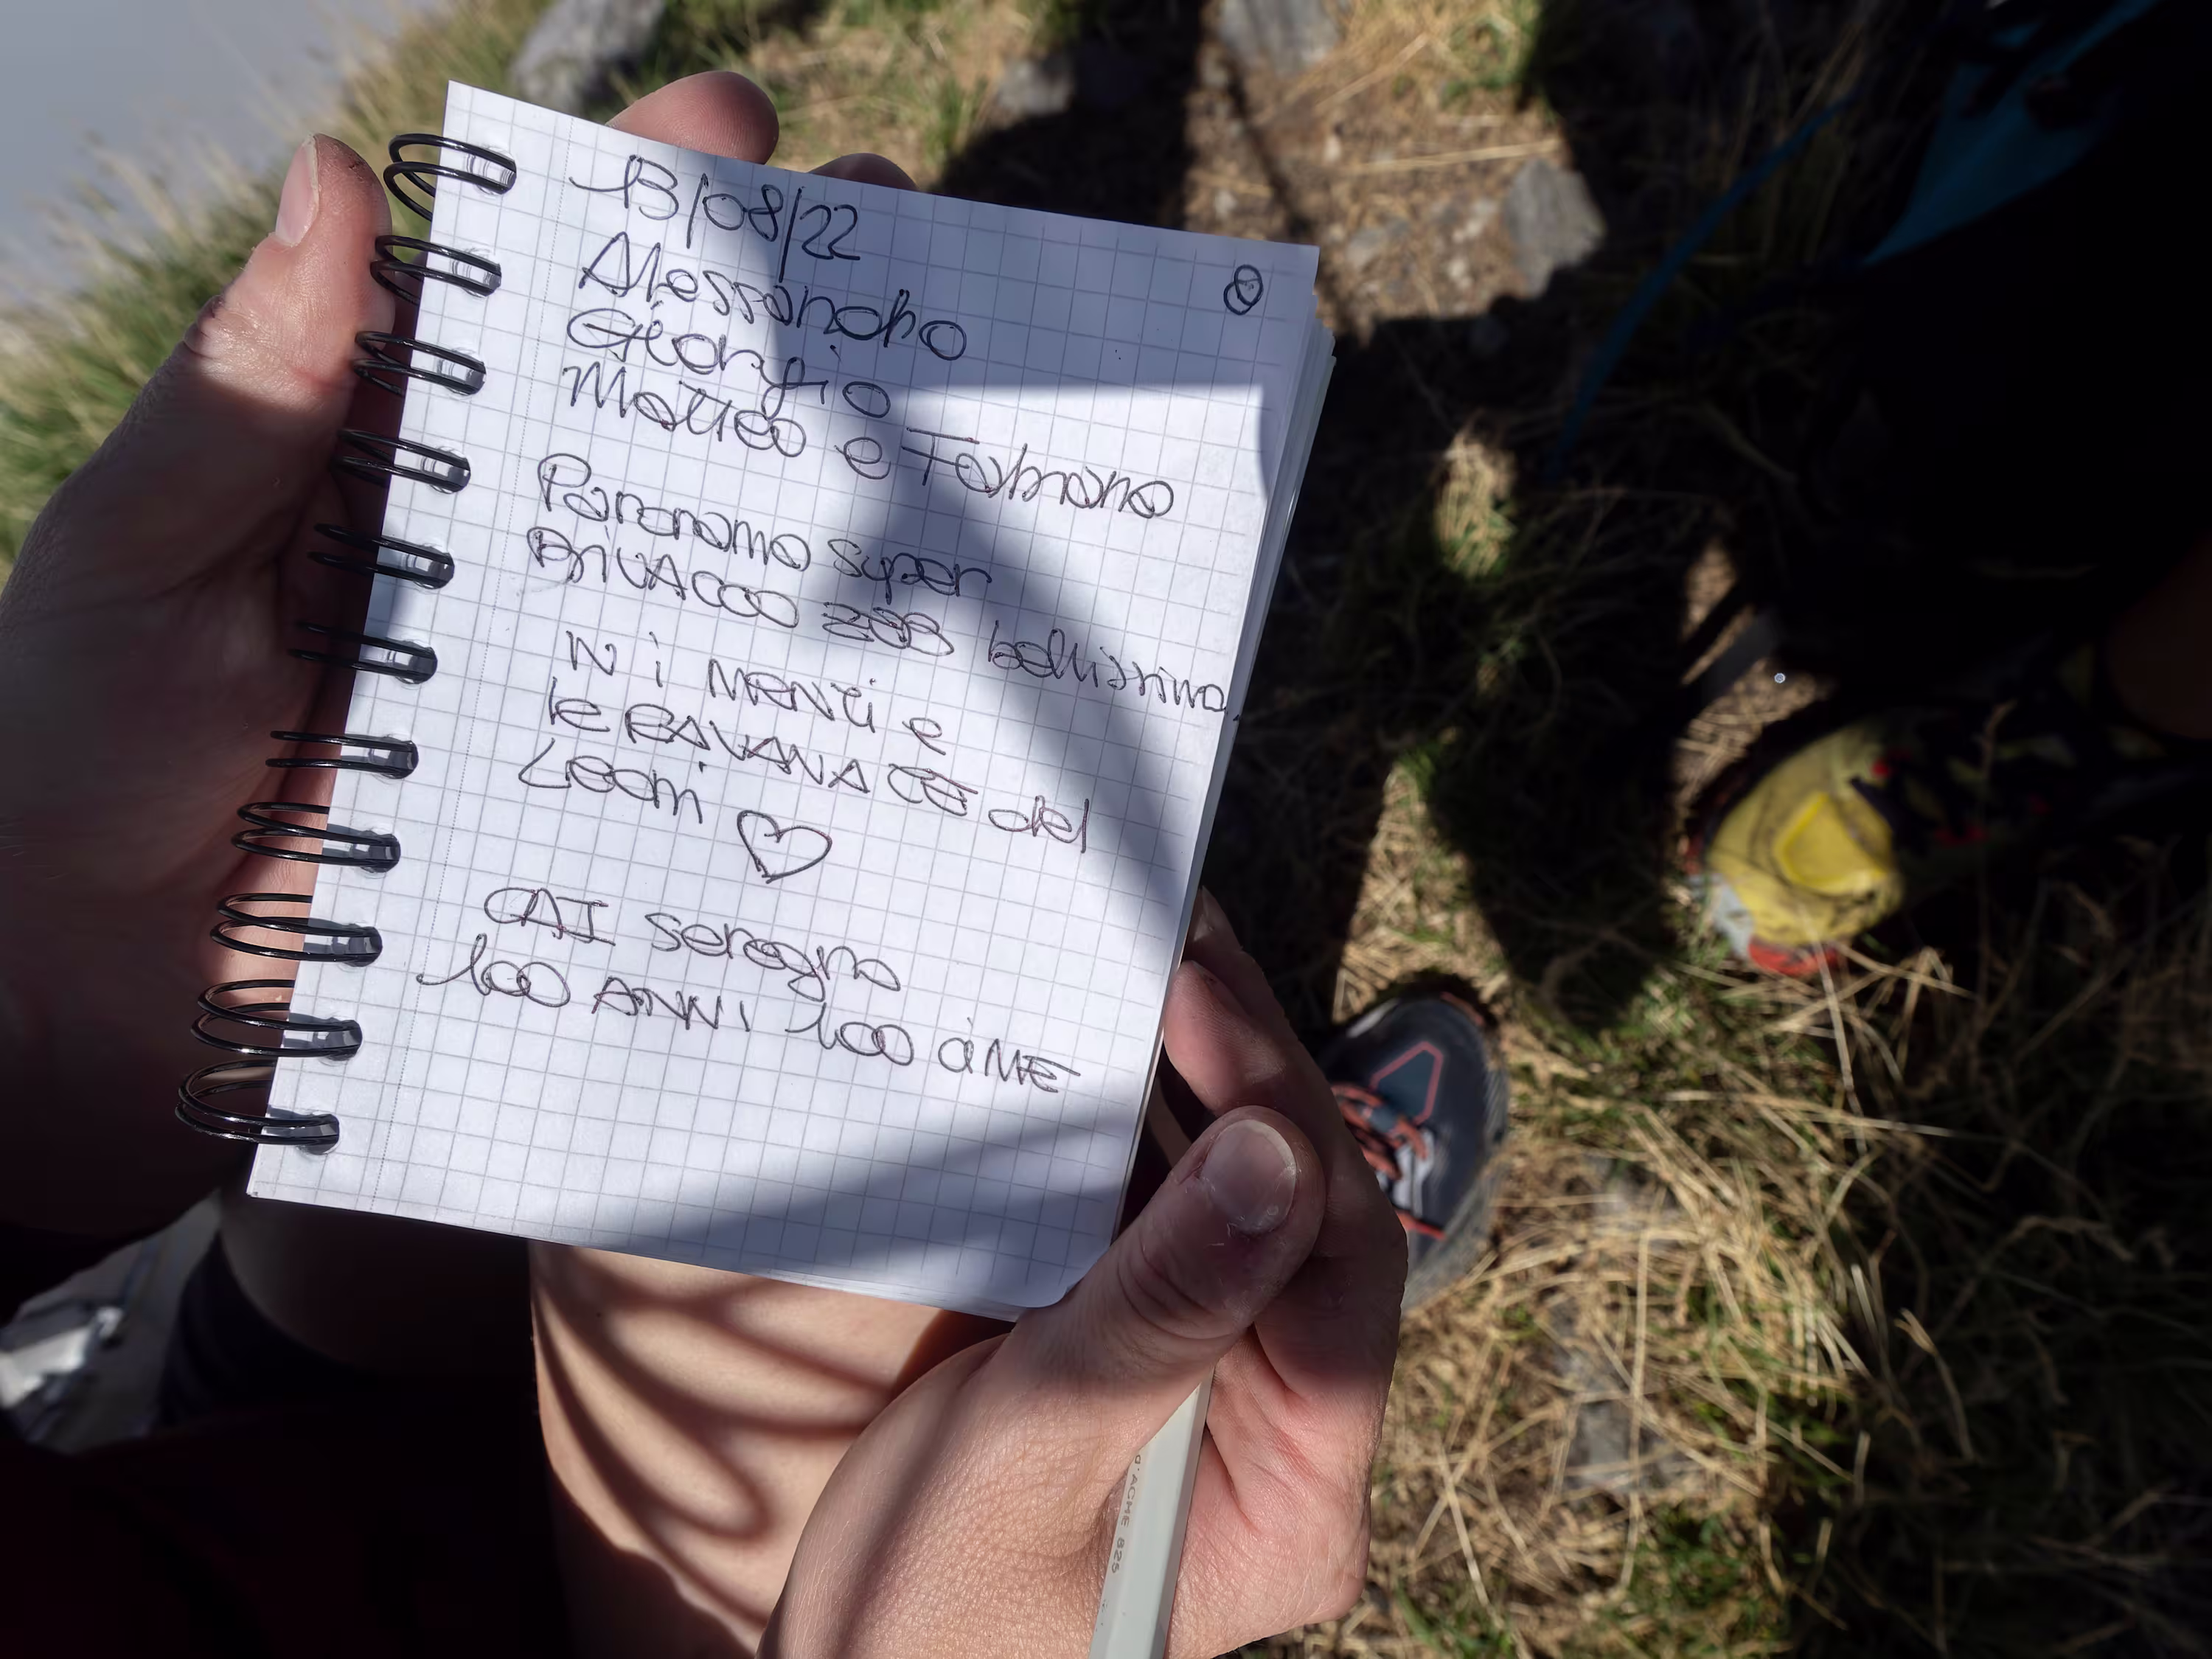 13/08/22
8
Alessandro
Giorgio
Matteo e Fabiano
Panorama super
BiVACCO bellissimo.
N i MENTi e
le PAVANA CE del
Leoni ♡
CAI seregno
100 ANNI 100 CiME
D'ACME 825